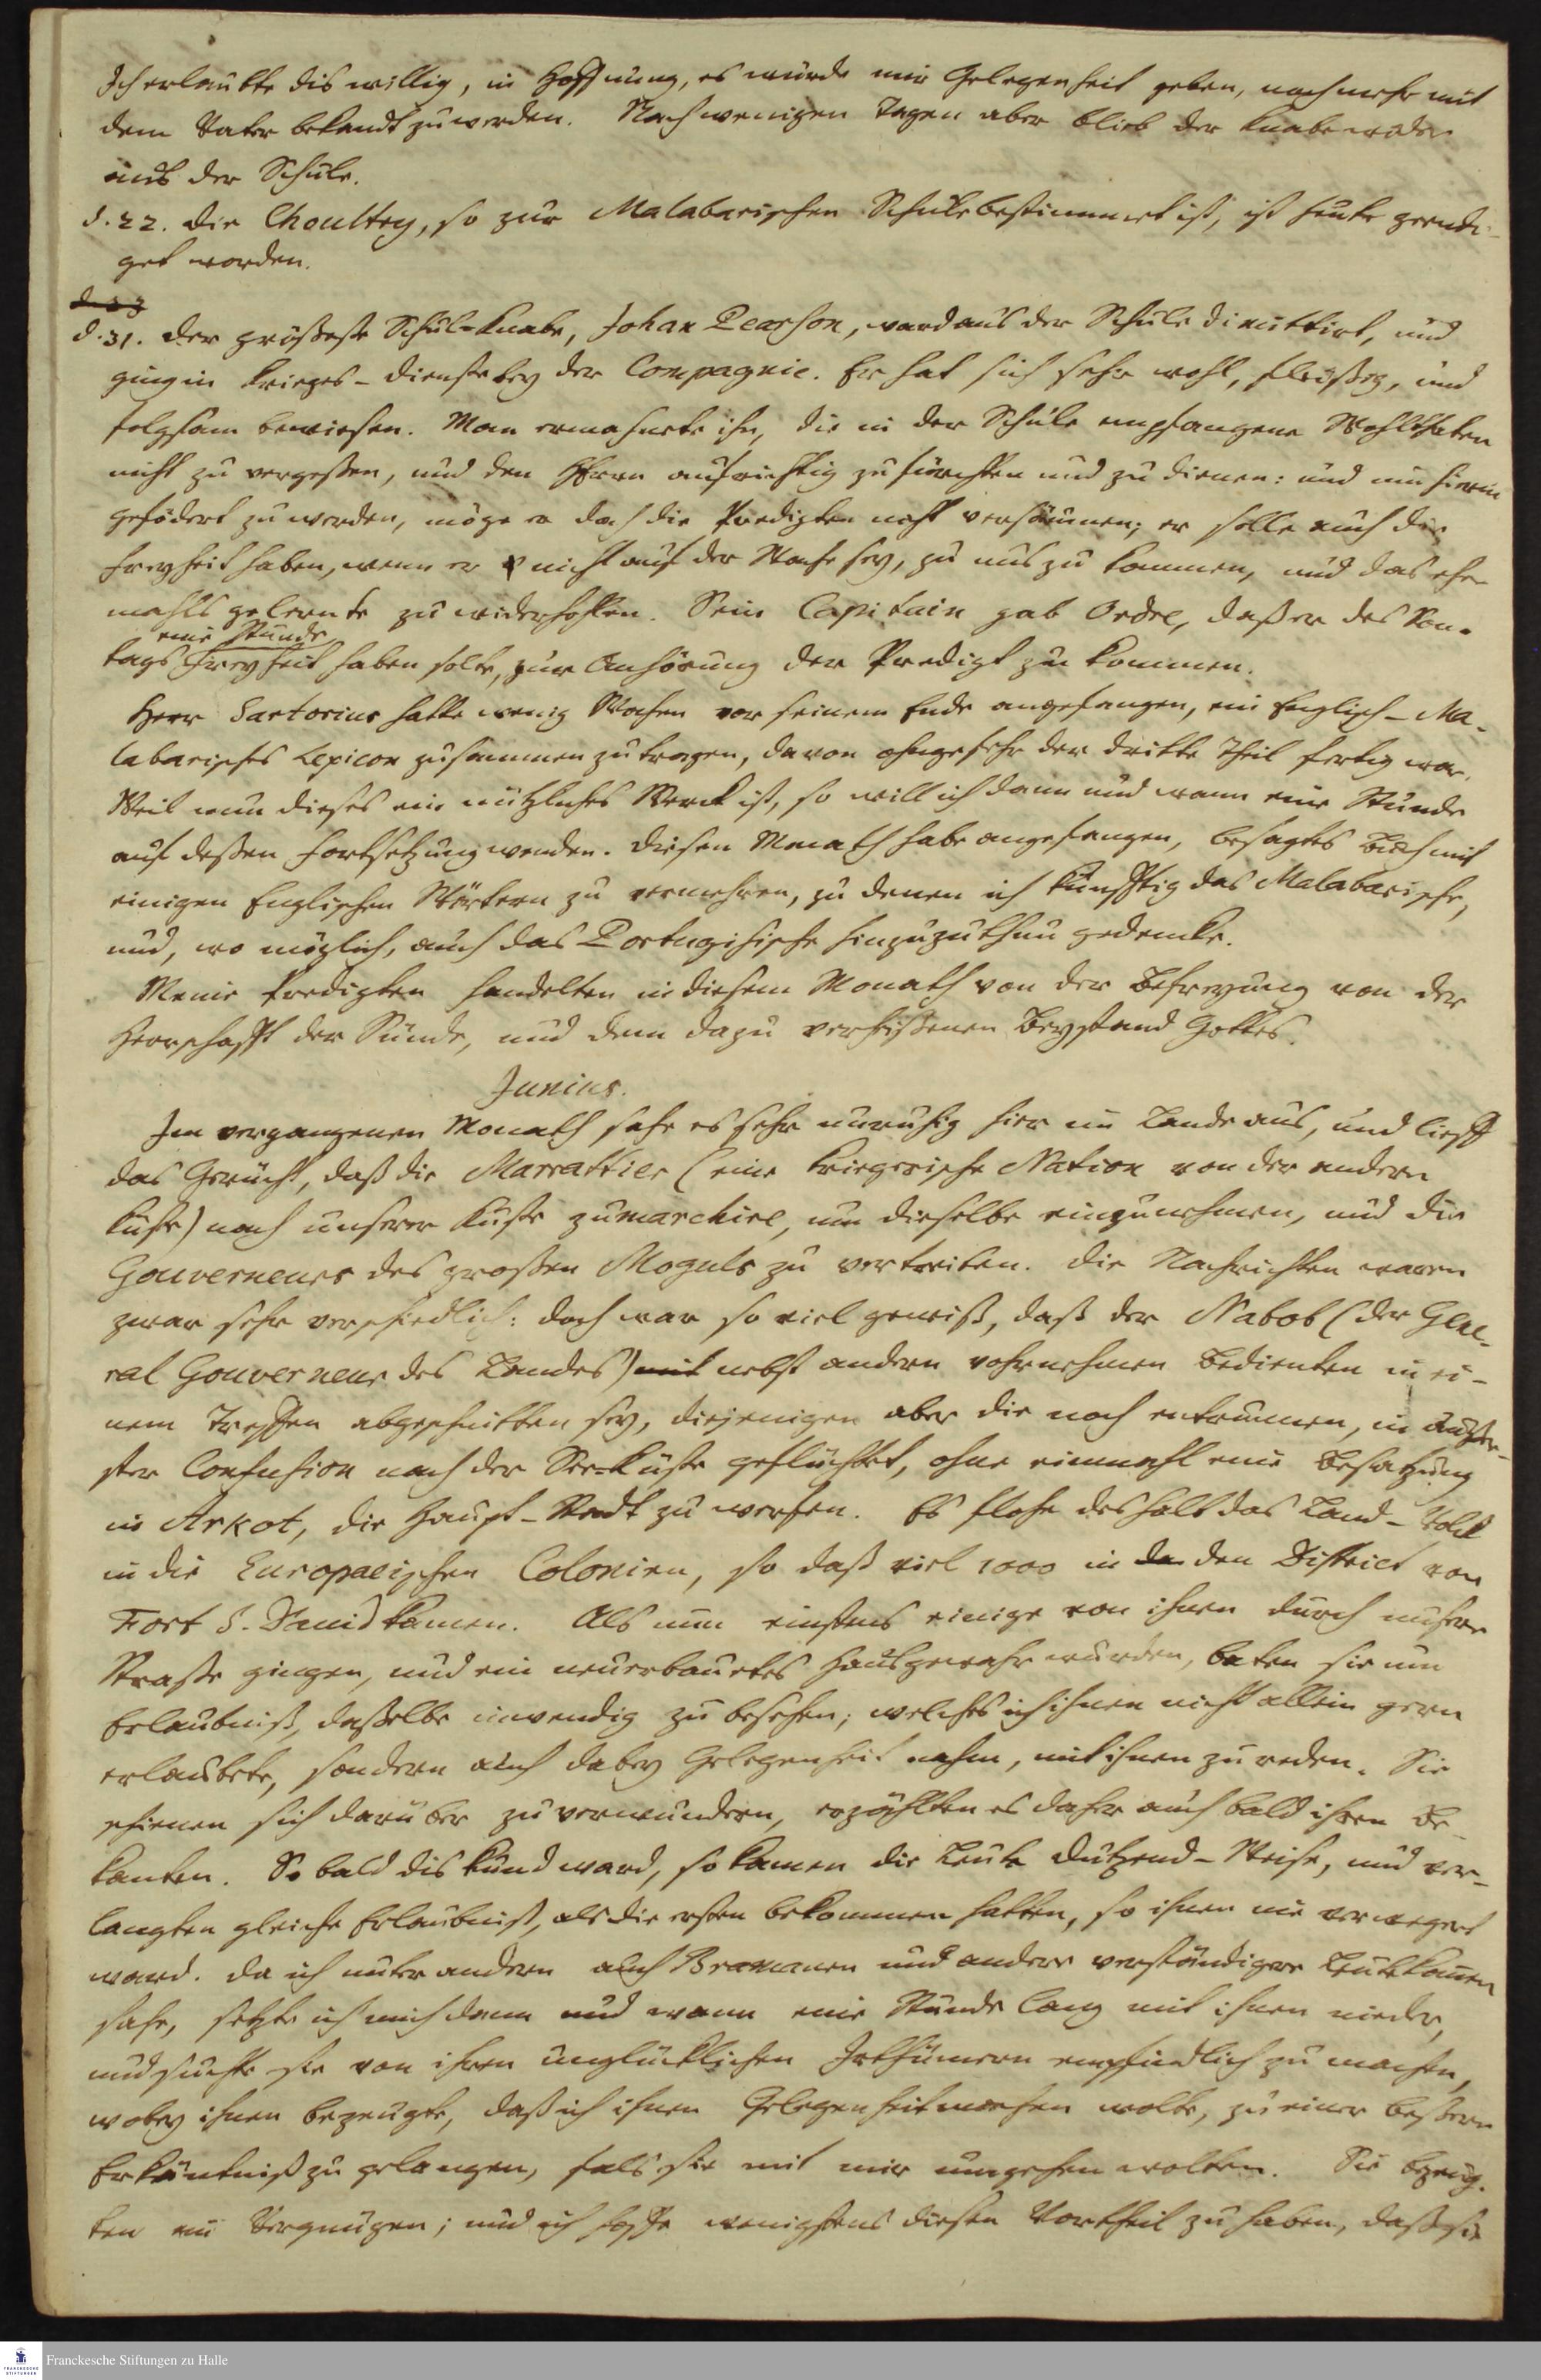 Ich erlaubte dis willig, in Hoffnung, es würde mir Gelegenheit geben, noch mehr mit
dem Vater bekandt zu werden. Nach wenigen Tagen aber blieb der Knabe wieder
aus der Schule.
d. 22. Die Choultry, so zur Malabarischen Schule bestimmet ist, ist heute geendi-
get worden.
d. 23
d. 31. Der größeste Schul-Knabe, Johan Pearson, ward aus der Schule dimittirt, und
ging in Krieges-Dienste bey der Compagnie. Er hat sich sehr wohl, fleißig, und
folgsam bewiesen. Man ermahnete ihn, die in der Schule empfangene Wohlthaten
nicht zu vergeßen, und den Herrn aufrichtig zu fürchten und zu dienen: und um hierin
gefödert zu werden, möge er doch die Predigten nicht versäumen; er solle auch die
Freyheit haben, wenn er nicht auf der Wache sey, zu uns zu kommen, und das ehe-
mahls gelernte zu widerhohlen. Sein Capitain gab Ordre, daß er des Son-
eine Stunde
tags Freyheit haben solte, zur Anhörung der Predigt zu kommen.
Herr Sartorius hatte wenig Wochen vor seinem Ende angefangen, ein Englisch-Ma-
labarisches Lexicon zusammen zu tragen, davon ohngefehr der dritte Theil fertig war.
Weil nun dieses ein nützliches Werck ist, so will ich dann und wann eine Stunde
auf deßen Fortsetzung wenden. Diesen Monath habe angefangen, besagtes Buch mit
einigen Englischen Wörtern zu vermehren, zu denen ich künfftig das Malabarische,
und, wo möglich, auch das Portugisische hinzuzuthun gedencke.
Meine Predigten handelten in diesem Monath von der Befreyung von der
Herrschafft der Sünde, und dem dazu verheißenen Beystand Gottes.
Junius.
Im vergangenen Monath sahe es sehr unruhig hier im Lande aus, und lieff
das Gerücht, daß die Marrattier (eine Kriegerische Nation von der andern
Küste) nach unserer Küste zu marchire, um dieselbe einzunehmen, und die
Gouverneurs des großen Moguls zu vertreiben. Die Nachrichten waren
zwar sehr verschiedlich: doch war so viel gewiß, daß der Nabob (der Gene-
ral Gouverneur des Landes) mit nebst andern vohrnehmen Bedienten in ei-
nem Treffen abgeschnitten sey, diejenigen aber die noch entrunnen, in äußer-
ster Confusion nach der See-Küste geflüchtet, ohne einmahl eine Besatzung
in Arkot, die Haupt-Stadt zu werfen. Es flohe deshalb das Land-Volck
in die Europaeischen Colonien, so daß viel 1000 in de den District von
Fort S. David kamen. Als nun einstens einige von ihnen durch unsere
Straße gingen, und ein neuerbauetes Haus gewahr wurden, baten sie um
Erlaubniß, daßelbe inwendig zu besehen; welches ich ihnen nicht allein gern
erlaubete, sondern auch dabey Gelegenheit nahm, mit ihnen zu reden. Sie
schienen sich darüber zu verwundern, erzählten es daher auch bald ihren Be-
kanten. So bald dis kund ward, so kamen die Leute Dutzend-Weise, und ver-
langten gleiche Erlaubniß, als die ersten bekommen hatten, so ihnen nie verwegert
ward. Da ich unter andern auch Bramanen und andere verständigere Leute kom̄en
sahe, setzte ich mich dann und wann eine Stunde lang mit ihnen nieder,
und suchte sie von ihren unglücklichen Irrthümern empfindlich zu machen,
wobey ihnen bezeugte, daß ich ihnen Gelegenheit machen wolte, zu einer beßern
Erkäntniß zu gelangen, fals sie mit mir umgehen wolten. Sie bezeug-
ten ein Vergnügen; und ich hoffe wenigstens diesen Vortheil zu haben, daß sie
Franckesche Stiftungen zu Halle